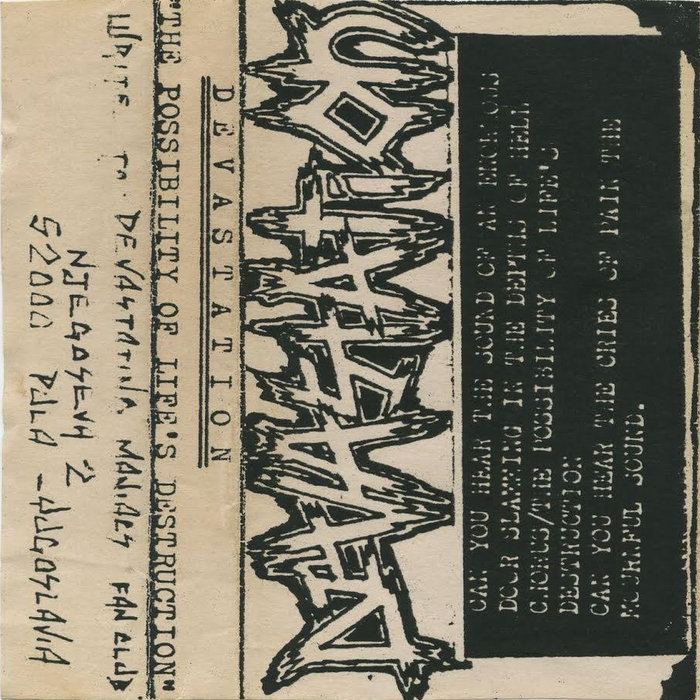 DEVASTATION
CAN YOU HEAR THE SOUND OF AN ENORMOUS
DOOR SLAMMING IN THE DEPTHS OF HELL
CHORUS/THE POSSIBILITY OF LIFE'S
DESTRUCTION
CAN YOU HEAR THE CRIES OF PAIN THE
MOURNFUL SOUND.
DEVASTATION
"THE POSSIBILITY OF LIFE'S DESTRUCTION"
WRITE TO DEVASTATING MANIACS FAN CLUB
NJEGOSEVA 2
52000 PULA - JUGOSLAVIA